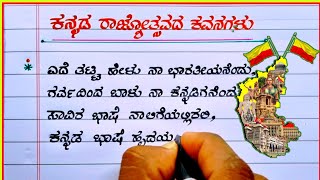 ಕನ್ನಡ ರಾಜ್ಯೋತ್ಸವದ ಕವನಗಳು
ಎದೆ ತಟ್ಟಿ ಹೇಳು ನಾ ಭಾರತೀಯನೆಂದು,
ಗರ್ವದಿಂದ ಬಾಳು ನಾ ಕನ್ನಡಿಗನೆಂದು
ಸಾವಿರ ಭಾಷೆ ನಾಲಿಗೆಯಲ್ಲಿರಲಿ,
ಕನ್ನಡ ಭಾಷೆ ಹೃದಯ